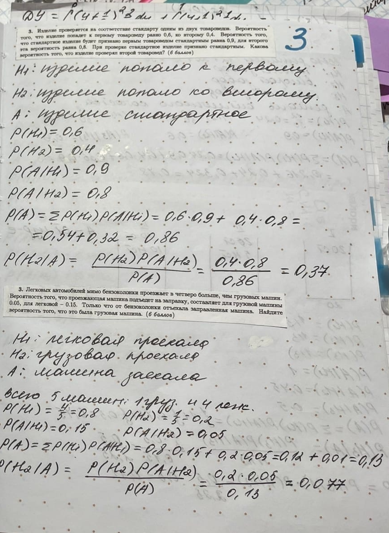 3
3. Изделие проверяется на соответствие стандарту одним из двух товароведов. Вероятность
того, что изделие попадет к первому товароведу равна 0,6, ко второму 0,4. Вероятность того,
что стандартное изделие будет признано первым товароведом стандартным равна 0,9, для второго
эта вероятность равна 0,8. При проверке стандартное изделие признано стандартным. Какова
вероятность того, что изделие проверял второй товаровед? (6 баллов)
H1: изделие попало к первому
H2: изделие попало ко второму
A: изделие стандартное
P(H1) = 0,6
P(H2) = 0,4
P(A|H1) = 0,9
P(A|H2) = 0,8
P(A) = ΣP(Hi)P(A|Hi) = 0,6·0,9 + 0,4·0,8 =
= 0,54 + 0,32 = 0,86
P(H2|A) = P(H2)P(A|H2) / P(A) = 0,4·0,8 / 0,86 = 0,37.
3. Легковых автомобилей мимо бензоколонки проезжает в четверо больше, чем грузовых машин.
Вероятность того, что проезжающая машина подъедет на заправку, составляет для грузовой машины
0.05, для легковой – 0.15. Только что от бензоколонки отъехала заправленная машина. Найдите
вероятность того, что это была грузовая машина. (6 баллов)
H1: легковая проехала
H2: грузовая проехала
A: машина заехала
Всего 5 машин: 1 груз. и 4 легк.
P(H1) = 4/5 = 0,8 P(H2) = 1/5 = 0,2
P(A|H1) = 0,15 P(A|H2) = 0,05
P(A) = ΣP(Hi)P(A|Hi) = 0,8·0,15 + 0,2·0,05 = 0,12 + 0,01 = 0,13
P(H2|A) = P(H2)P(A|H2) / P(A) = 0,2·0,05 / 0,13 = 0,077.